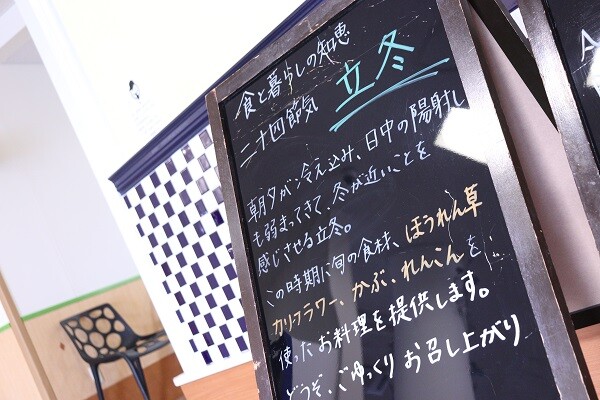 食と暮らしの知恵
二十四節気 立冬
朝夕が冷え込み、日中の陽射し
も弱まってきて、冬が近いことを
感じさせる立冬。
この時期に旬の食材、ほうれん草
カリフラワー、かぶ、れんこんを
使ったお料理を提供します。
どうぞ、ごゆっくりお召し上がり
A